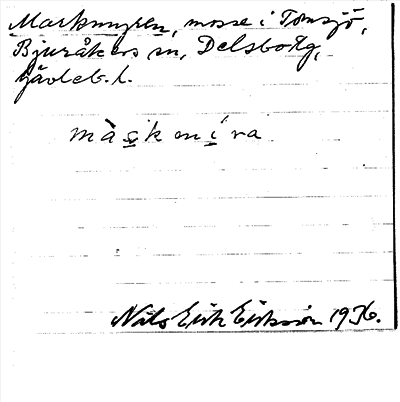 Markmyren, mosse i Tomsjö,
Bjuråkers sn, Delsbo tg,
Gävleb. l.
màskení́ra
Nils Erik Eriksson 1936.